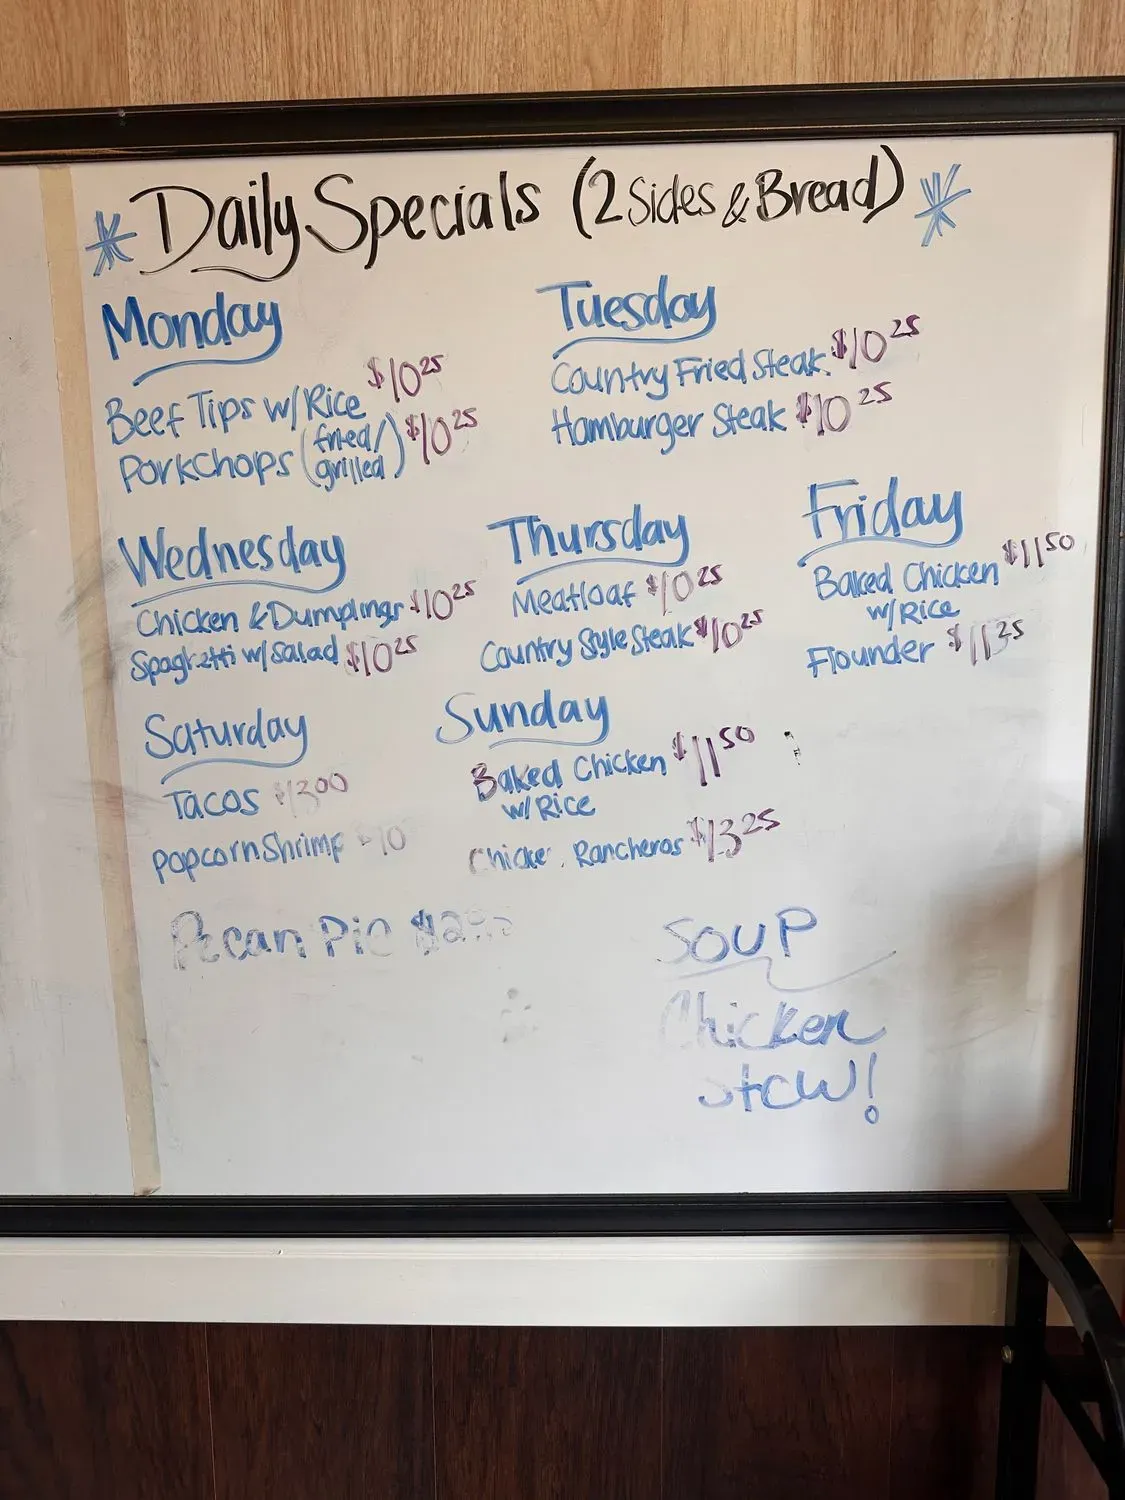 * Daily Specials (2 Sides & Bread) *
Monday
Beef Tips w/Rice $10.25
Porkchops (fried/grilled) $10.25
Tuesday
Country Fried Steak. $10.25
Hamburger Steak $10.25
Wednesday
Chicken & Dumplings $10.25
Spaghetti w/Salad $10.25
Thursday
Meatloaf $10.25
Country Style Steak $10.25
Friday
Baked Chicken $11.50
w/Rice
Flounder $11.25
Saturday
Tacos $13.00
Popcorn Shrimp
Sunday
Baked Chicken $11.50
w/Rice
Chicken Rancheros $13.25
Pecan Pie
Soup
Chicken
Stew!